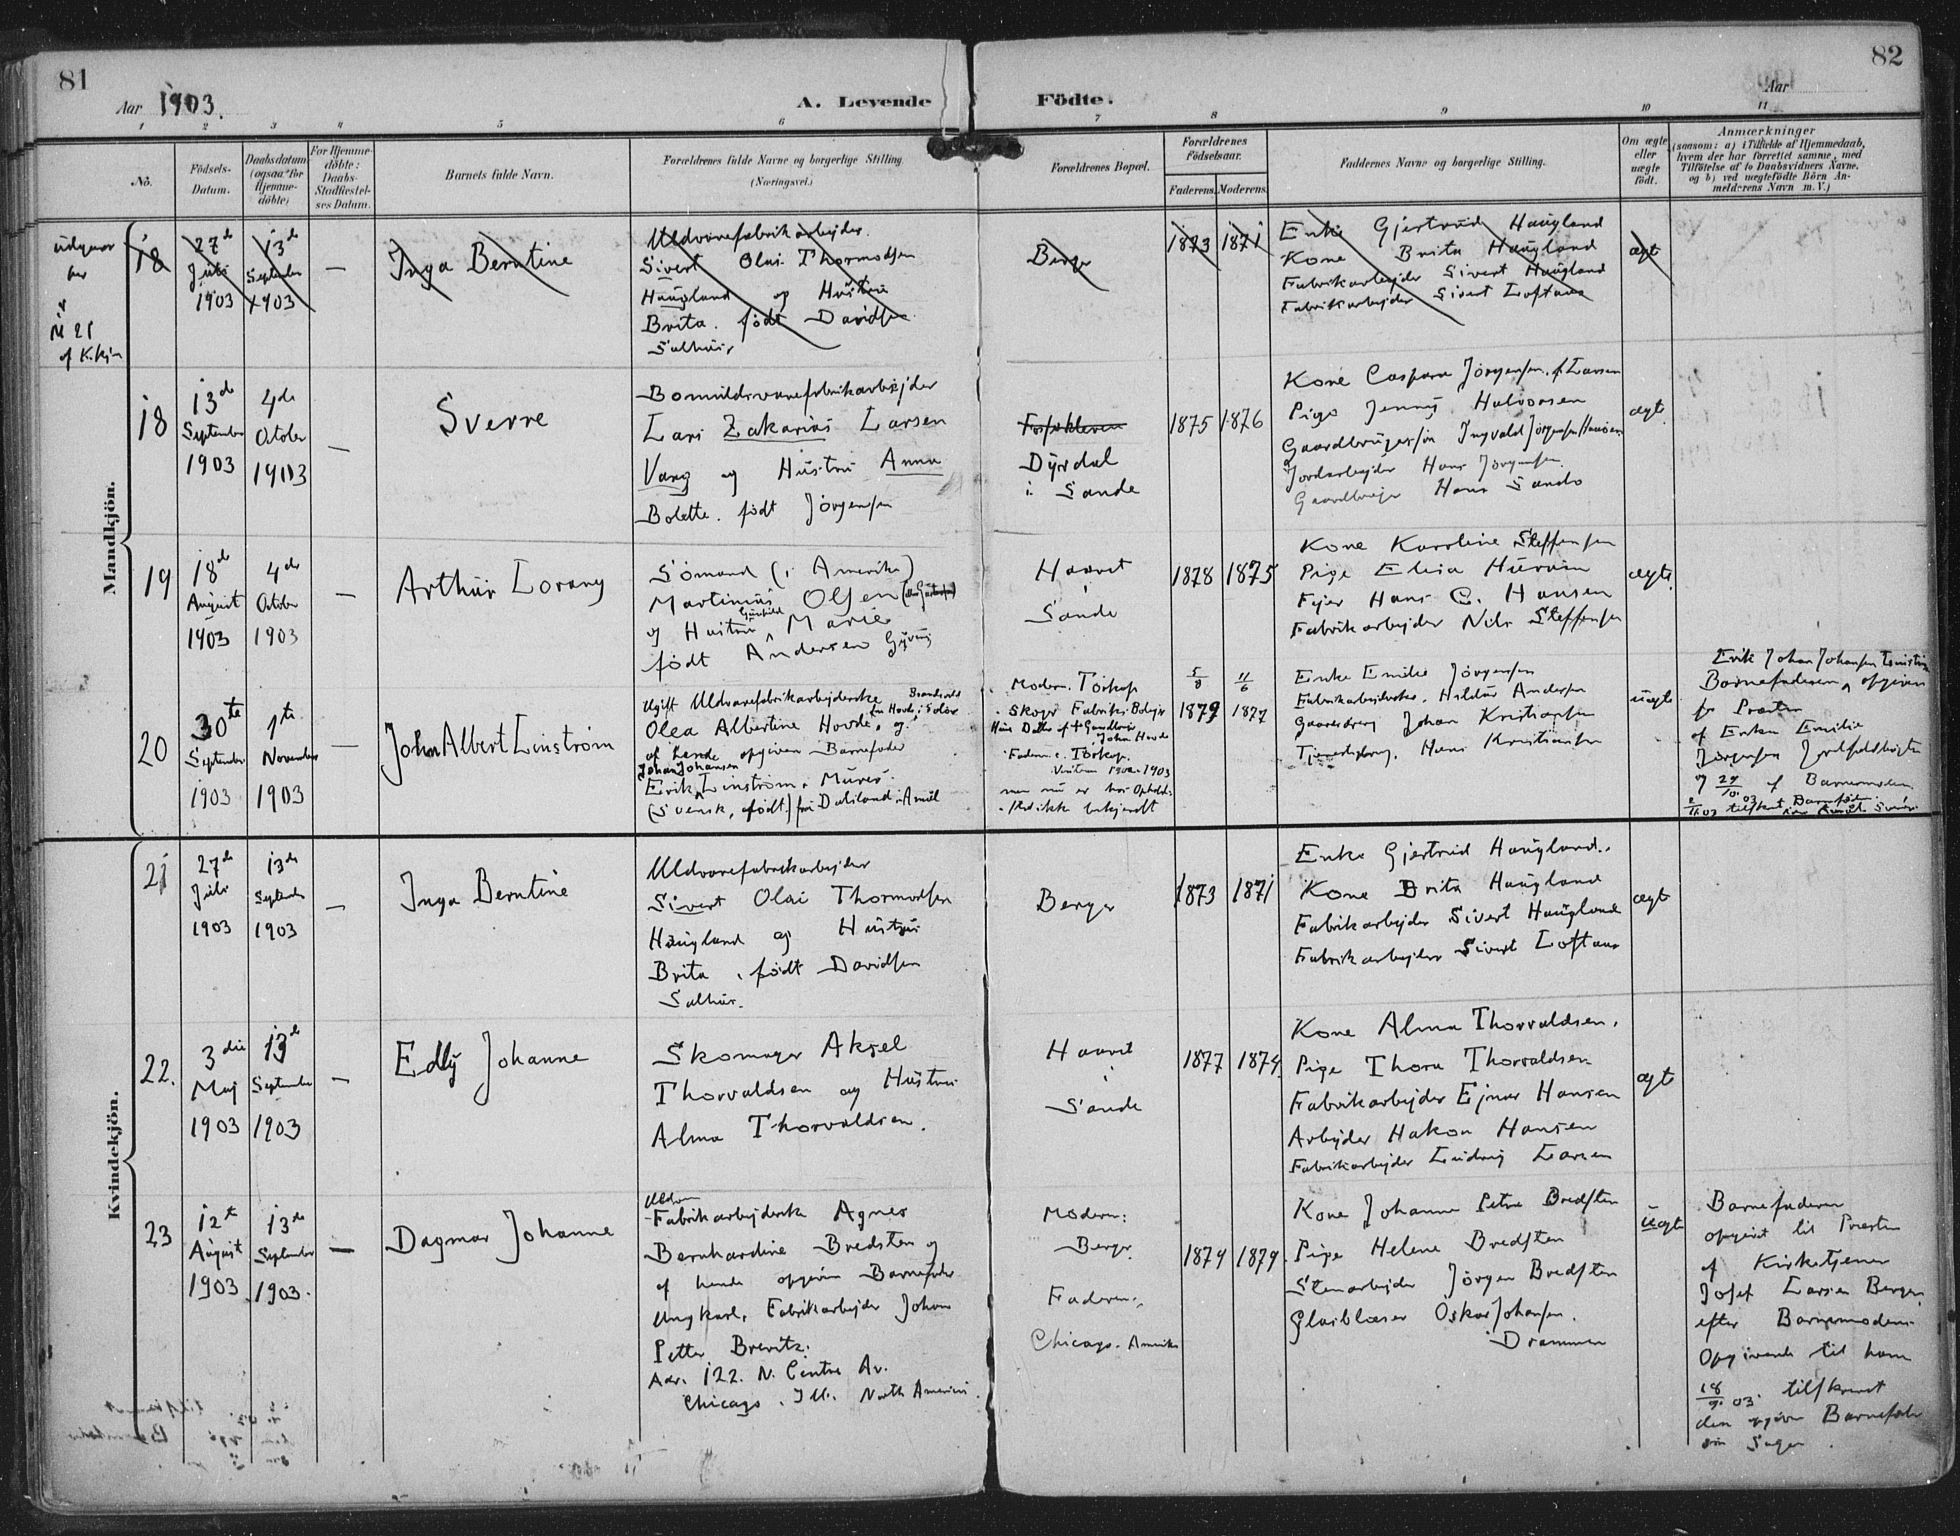 81
Aar 1903.
A. Levende Födte.
82
Aar
1 2 3 4 5 6 7 8 9 10 11
No.
Födsels-
Datum.
Daabsdatum
(ogsaa for
Hjemme-
döbte)
For Hjemme-
döbte:
Daabs-
Stadfæstel-
ses Datum.
Barnets fulde Navn.
Forældrenes fulde Navne og borgerlige Stilling.
(Næringsvei.)
Forældrenes Bopæl.
Forældrenes
födselsaar.
Faderens. Moderens.
Faddernes Navne og borgerlige Stilling.
Om ægte
eller
uægte
födt.
Anmærkninger
(saasom: a) i Tilfælde af Hjemmedaab,
hvem der har forrettet samme, med
Tilföielse af to Daabsvidners Navne.
og b) ved uægtefödte Börn An-
melderens Navn m. V.)
Mandkjön.
udgaar
№ 21
af K.kjn
18
27de
Juli
1903
13de
September
1903
—
Inga Berntine
Uldvarefabrikarbejder
Sivert Olai Thormodsen
Haugland og Hustru
Brita. født Davidsen
Salhus.
Berger
1873 1871
Enke Gjertrud Haugland
Kone Brita Haugland
Fabrikarbejder Sivert Haugland
Fabrikarbejder Sivert Loftaas
ægt
18
13de
September
1903
4de
October
1903
—
Sverre
Bomuldsvarefabrikarbejder
Lars Zakarias Larsen
Vang og Hustru Anna
Bolette. født Jörgensen
Dyrdal
i Sande
1875 1876
Kone Caspara Jörgensen. f. Larsen
Pige Jenny Halvorsen
Gaardbrugersön Ingvald Jörgensen
Jordarbejder Hans Jörgensen
Hans Sando
ægte
19
18de
August
1903
4de
October
1903
—
Arthur Lorang
Sömand (i Amerika)
Martinus Olsen
og Hustru Gunhild Marie
født Andersen
Haavet
i
Sande
1878 1875
Kone Karoline Steffensen
Pige Elisa
Fejer Hans C. Hansen
Fabrikarbejder Nils Steffensen
ægte
20
30te
September
1903
1ste
November
1903
—
John Albert Linström
Ugift Uldvarefabrikarbejderske
Olea Albertine Hovde, og
af hende opgiven Barnefader
Johan Johansen
Erik Linström, Murer
(Svensk, født) fra Dalsland, Amål
Modern. Torkop
Skoger Fabriks. Bolig
Fadern: Torkop.
men nu er hans Ophold-
sted ikke bekjendt
5/8 11/6
1879 1877
Enke Emilie Jörgensen
Fabrikarbejderske. Hilda Andersen
Johan Kristiansen
Hans Kristiansen
uægte
Erik Johan Johansen Linström
Barnefaderen opgiven
for Præsten
af Enken Emilie
Jörgensen
og 29/10.03 af Barnemoderen
Kvindekjön.
21
27de
Juli
1903
13de
September
1903
—
Inga Berntine
Uldvarefabrikarbejder
Sivert Olai Thormodsen
Haugland og Hustru
Brita, født Davidsen
Salhus.
Berger
1873 1871
Enke Gjertrud Haugland.
Kone Brita Haugland
Fabrikarbejder Sivert Haugland
Fabrikarbejder Sivert Loftaas
ægt
22.
3die
Maj
1903
13de
September
1903
—
Edly Johanne
Skomager Aksel
Thorvaldsen og Hustru
Alma Thorvaldsen.
Haavet
i
Sande
1877 1879.
Kone Alma Thorvaldsen.
Pige Thora Thorvaldsen
Fabrikarbejder Ejnar Hansen
Arbejder Hakon Hansen
Fabrikarbejder Ludvig Larsen
ægt
23
12te
August
1903
13de
September
1903.
—
Dagmar Johanne
Uldvare
Fabrikarbejderske Agnes
Bernhardine Bredsten og
af hende opgiven Barnefader
Ungkarl, Fabrikarbejder Johan
Petter Brevitz.
Adr. 122. N. Centre Av.
Chicago. Ill. North America.
Modern:
Berger
Faderen:
Chicago. Amerika
1879 1879.
Kone Johanne Petra Bredsten
Pige Helene Bredsten
Stenarbejder Jörgen Bredsten
Glasblæser Oskar Johansen.
Drammen
uægt
Barnefaderen
opgivet til Præsten
af Kirketjener
Josef Larsen Berger,
efter Barnemoderens
Opgivende til ham
18/9 03. tilskrevet
den opgivne Barnefader
om Sagen.